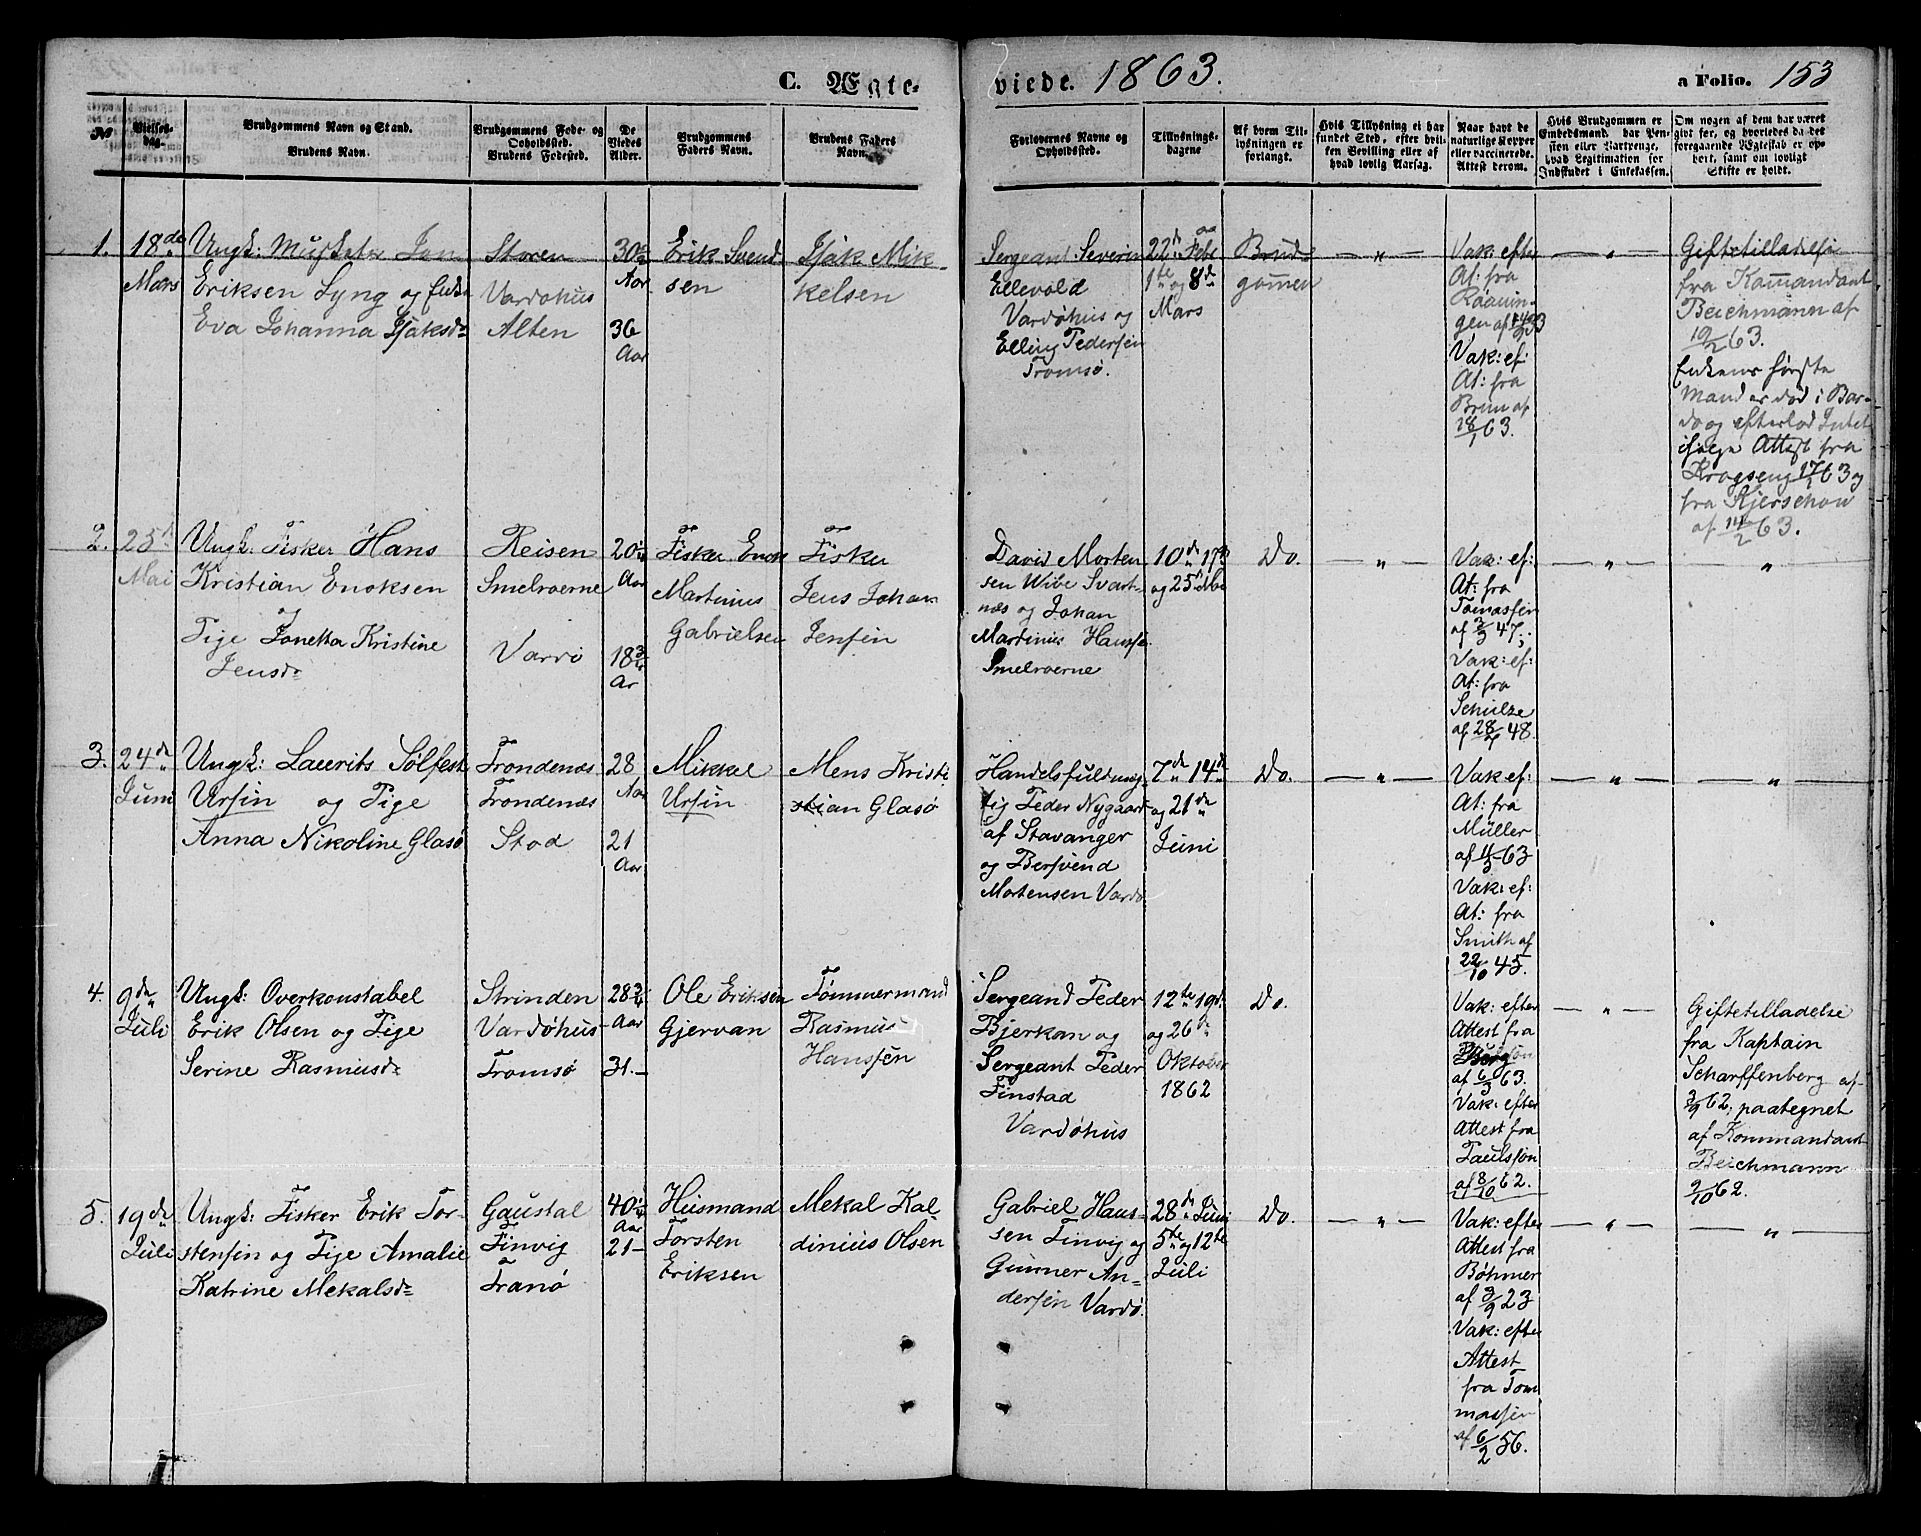 C. Ægte-
viede. 1863.
a Folio. 153
№
Vielses-
dag.
Brudgommens Navn og Stand.
Brudens Navn.
Brudgommens Føde- og
Opholdssted.
Brudens Fødested.
De
Viedes
Alder.
Brudgommens
Faders Navn.
Brudens Faders
Navn.
Forlovernes Navne og
Opholdssted.
Tillysnings-
dagene
Af hvem Til-
lysningen er
forlangt.
Hvis Tillysning ei har
fundet Sted, efter hvil-
ken Bevilling eller af
hvad lovlig Aarsag.
Naar havt de
naturlige Kopper
eller vaccinerede.
Attest derom.
Hvis Brudgommen er
Embedsmand, har Pen-
sion eller Vartpenge,
hvad Legitimation for
Indskudet i Enkekassen.
Om nogen af dem har været
gift før, og hvorledes da det
foregaaende Ægteskab er op-
hørt, samt om lovligt
Skifte er holdt.
1.
18de
Mars
Ungk: Musketer Jon
Eriksen Lyng og Enke
Eva Johanna Isaksd=
Støren
Vardøhus
Alten
30
Aar
36
Aar
Erik Svend-
sen
Isak Mik-
kelsen
Sergeant Severin
Ellevold
Vardøhus og
Elling Pedersen
Tromsø.
22d Feb
1te og 8d
Mars
Brud-
gomen
— " —
Vak: efter
At: fra
gen af
Vak: ef:
At: fra
Brun af
18/1 63.
— " —
Giftetilladelse
fra Komandant
Beichmann af
19/2 63.
Enkens første
Mand er død i Bar-
do og efterlod Intet
ifølge Attest fra
Krogseng 17/1 63 og
fra Kjerschow
af 14/2 63.
2.
25d
Mai
Ungk. Fisker Hans
Kristian Enoksen
og
Pige Jonetta Kristine
Jensd=
Reisen
Smelroerne
Vardø
20 1/4
Aar
18 3/4
Ar
Fisker Enok
Martinus
Gabrielsen
Fisker
Jens Johan
Jensen
David Morten
sen Wibe Svart-
næs og Johan
Martinus Hansse
Smelroerne
10d 17d
og 25d Mai
Do.
— " —
Vak: ef:
At: fra
Tomassen
af 3/3 47;
Vak: ef:
At: fra
Schulze
af 28/9 48.
— " —
"
3.
24d
Juni
Ungk: Laurits Solfest
Ursin og Pige
Anna Nikoline Glasø
Trondenæs
Trondenæs
Stod
28
Aar
21
Aar
Mikkel
Ursin
Mens Kristi
stian Glasø
Handelsfuldmæg-
tig Peder Nygaard
af Stavanger
og Bersvend
Mortensen Vardø
7d 14d
og 21de
Juni
Do.
— " —
Vak ef:
At: fra
Müller
af 4/3 63
Vak: ef:
At: fra
Smith af
22/10 45.
— " —
"
4.
9de
Juli
Ungk: Overkonstabel
Erik Olsen og Pige
Serine Rasmusd=
Strinden
Vardøhus
Tromsø
28 3/4
Aar
31.—
Ole Eriksen
Gjervan
Tømmermand
Rasmus
Hanssen
Sergeand Peder
Bjerkan og
Sergeant Peder
Finstad
Vardøhus
12te 19d
og 26d
Oktober
1862
Do.
Vak: efter
Attest fra
af 6/3 63.
Vak: efter
Attest fra
Paulsson
af 8/10 62.
— " —
Giftetilladelse
fra Kaptain
Scharffenberg af
3/9 62; paategnet
af Kommandant
Beichmann
9/10 62.
5.
19de
Juli
Ungk: Fisker Erik Tor-
stensen og Pige Amalie
Katrine Mekalsd=
Gaustal
Finvig
Tranø
40 1/4
Aar
21—
Husmand
Torsten
Eriksen
Mekal Kal
dinius Olsen
Gabriel Hans-
sen Finvig og
Gunner An-
dersen Vardø.
28d Juni
5te og 12te
Juli
Do.
— " —
Vak: efter
Attest fra
Bøhmer
af 3/9 23
Vak: efter
Attest
fra Tom
massen
af 6/2 56.
— " —
"